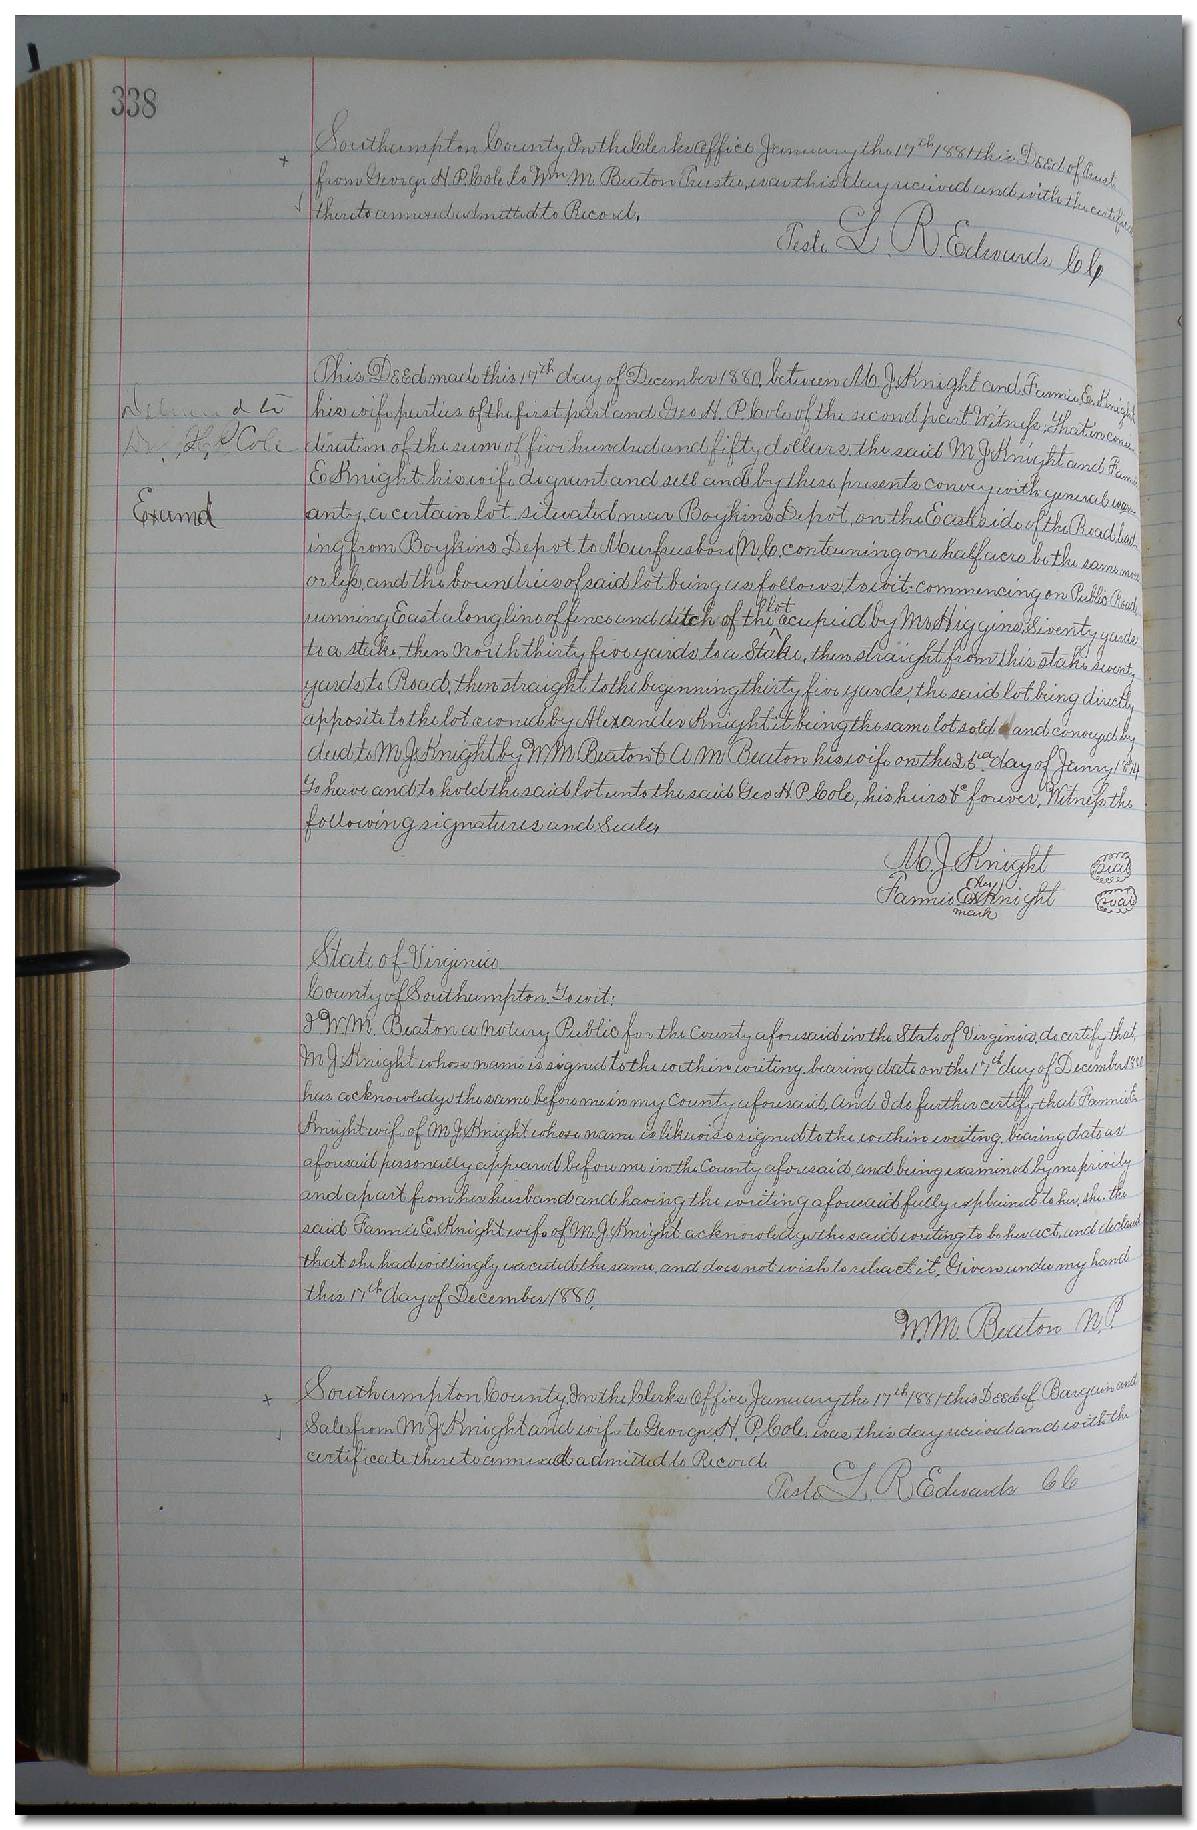 338
Southampton County In the Clerks Office January the 17th 1881 this Deed of Trust
from George H. P. Cole to Wm M. Beaton Trustee, was this day received and with the certificate
thereto annexed admitted to Record.
Teste L. R. Edwards CC
This Deed made this 17th day of December 1880, between M. J. Knight and Fannie E. Knight
Delivered to
his wife parties of the first part and Geo H. P. Cole of the second part Witness That in consi-
Dr. H P Cole
deration of the sum of five hundred and fifty dollars, the said M J Knight and Fannie
E Knight his wife do grant and sell and by these presents convey with general warr-
Examd
anty, a certain lot situated near Boykins Depot, on the East side of the Road lead-
ing from Boykins Depot to Murfreesboro N.C. containing one half acre be the same more
or less, and the boundries of said lot being as follows, to wit: commencing on Public Road,
running East along line of fence and ditch of the lot ocupied by Mr Higgins, Siventy yards
to a stake, then North thirty five yards to a Stake, then straight from this stake seventy
yards to Road, then straight to the beginning thirty five yards, the said lot being directly
apposite to the lot owned by Alexander Knight it being the same lot sold and conveyed by
deed to M J Knight by W M Beaton & A M Beaton his wife on the day of Janry
To have and to hold the said lot unto the said Geo H. P. Cole, his heirs &c forever, Witness the
following signatures and Seals,
M. J. Knight Seal
Fannie E her x Knight Seal
mark
State of Virginia
County of Southampton To wit:
I W M. Beaton a Notary Public for the County aforesaid in the State of Virginia, do certify that
M J Knight whose name is signed to the within writing bearing date on the 17th day of December 1880
has acknowledge the same before me in my County aforesaid, and I do further certify that Fannie E
Knight wife of M J Knight whose name is likewise signed to the within writing bearing date as
aforesaid personally appeared before me in the County aforesaid, and being examined by me privily
and apart from her husband and having the writing aforesaid fully explained to her, she the
said Fannie E. Knight wife of M J Knight acknowledge the said writing to be her act, and declared
that she had willingly executed the same, and does not wish to retract it, Given under my hand
this 17th day of December 1880,
W. M. Beaton N. P.
Southampton County, In the Clerks Office January the 17th 1881 this Deed of Bargain and
Sale from M J Knight and wife to George H. P. Cole, was this day received and with the
certificate thereto annexed admitted to Record
Teste L. R. Edwards CC